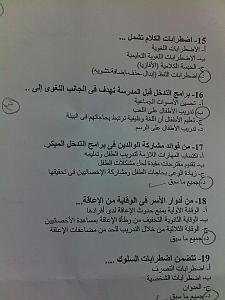 15- اضطرابات الكلام تشمل ...
أ- الاضطرابات اللغوية
ب- الاضطرابات اللغوية التعليمية
ج- الحبسة الكلامية (الأفازيا)
د- اضطرابات النطق (إبدال-حذف-إضافة-تشويه)
16- برامج التدخل قبل المدرسة تهدف في الجانب اللغوى إلى ..
أ- تحسين الأصوات الجماعية
ب- تدريب الأطفال على اللعب
ج- تعليم الأطفال أن اللغة وظيفية ترتبط بحاجاتهم في البيئة
د- تدريب الأطفال على الرسم
17- من فوائد مشاركة الوالدين في برامج التدخل المبكر..
أ- اكتساب المهارات اللازمة لتدريب الطفل وتعليمه
ب- تقديم مقترحات مفيدة لحل مشكلات الطفل
ج- زيادة الوعي بحاجات الطفل ومشاركة الإخصائيين في تحقيقها
د- جميع ما سبق
18- من أدوار الأسر في الوقاية من الإعاقة...
أ- الوقاية الأولية بمنع حدوث الإعاقة لدى أفرادها
ب- الوقاية الثانوية للتخفيف من وطأة الإعاقة بمساعدة الأخصائيين
ج- الوقاية الثلاثية من خلال التدريب للحد من مضاعفات الإعاقة
د- جميع ما سبق
19- تتضمن اضطرابات السلوك ....
أ- اضطرابات التصرف
ب- اضطرابات الشخصية
ج- العدوان
د- جميع ما سبق